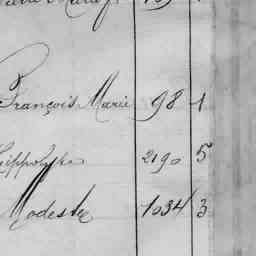 François Marie 98 1
Hippolyte 2190 5
Modeste 1034 3